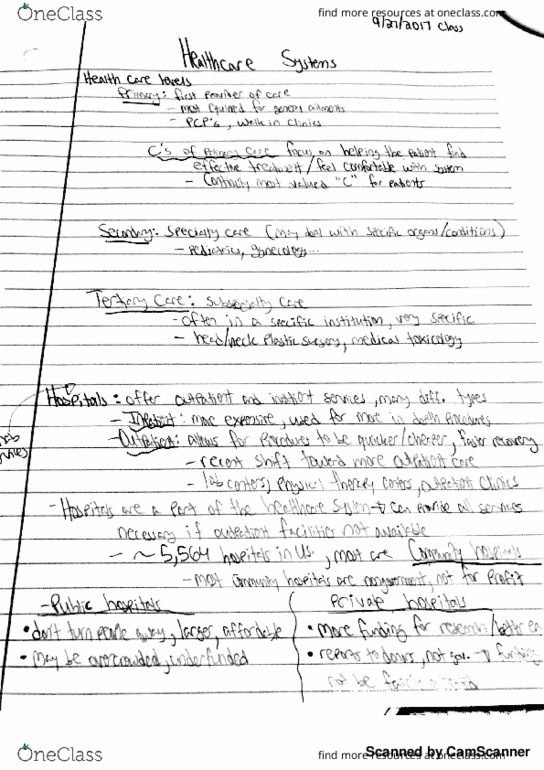 OneClass
find more resources at oneclass.com
9/27/2017 Class
Healthcare Systems
Health care levels
Primary: first provider of care
- most equipped for general ailments
- PCP's, walk in clinics
C's of Primary Care focus on helping the patient find
effective treatment/feel comfortable with system
- Continuity most valued "C" for patients
Secondary: Specialty care (may deal with specific organs/conditions)
- Pediatrics, gynecology...
Tertiary Care: Subspecialty care
- often in a specific institution, very specific
- head/neck plastic surgery, medical toxicology
Hospitals: offer outpatient and inpatient services, many diff. types
- Inpatient: more expensive, used for more in depth procedures
- Outpatient: allows for procedures to be quicker/cheaper, faster recovery
- recent shift toward more outpatient care
- lab centers, physical therapy centers, outpatient clinics
- Hospitals are a part of the healthcare system → can provide all services
necessary if outpatient facilities not available
- ~ 5,564 hospitals in U.S., most are Community hospitals
- most community hospitals are nongovernment, not for profit
- Public hospitals
Private hospitals
• don't turn people away, larger, affordable
• may be overcrowded, underfunded
• more funding for research/better
• reports to donors, not gov. → funding
not be
OneClass
find more resources at oneclass.com
Scanned by CamScanner